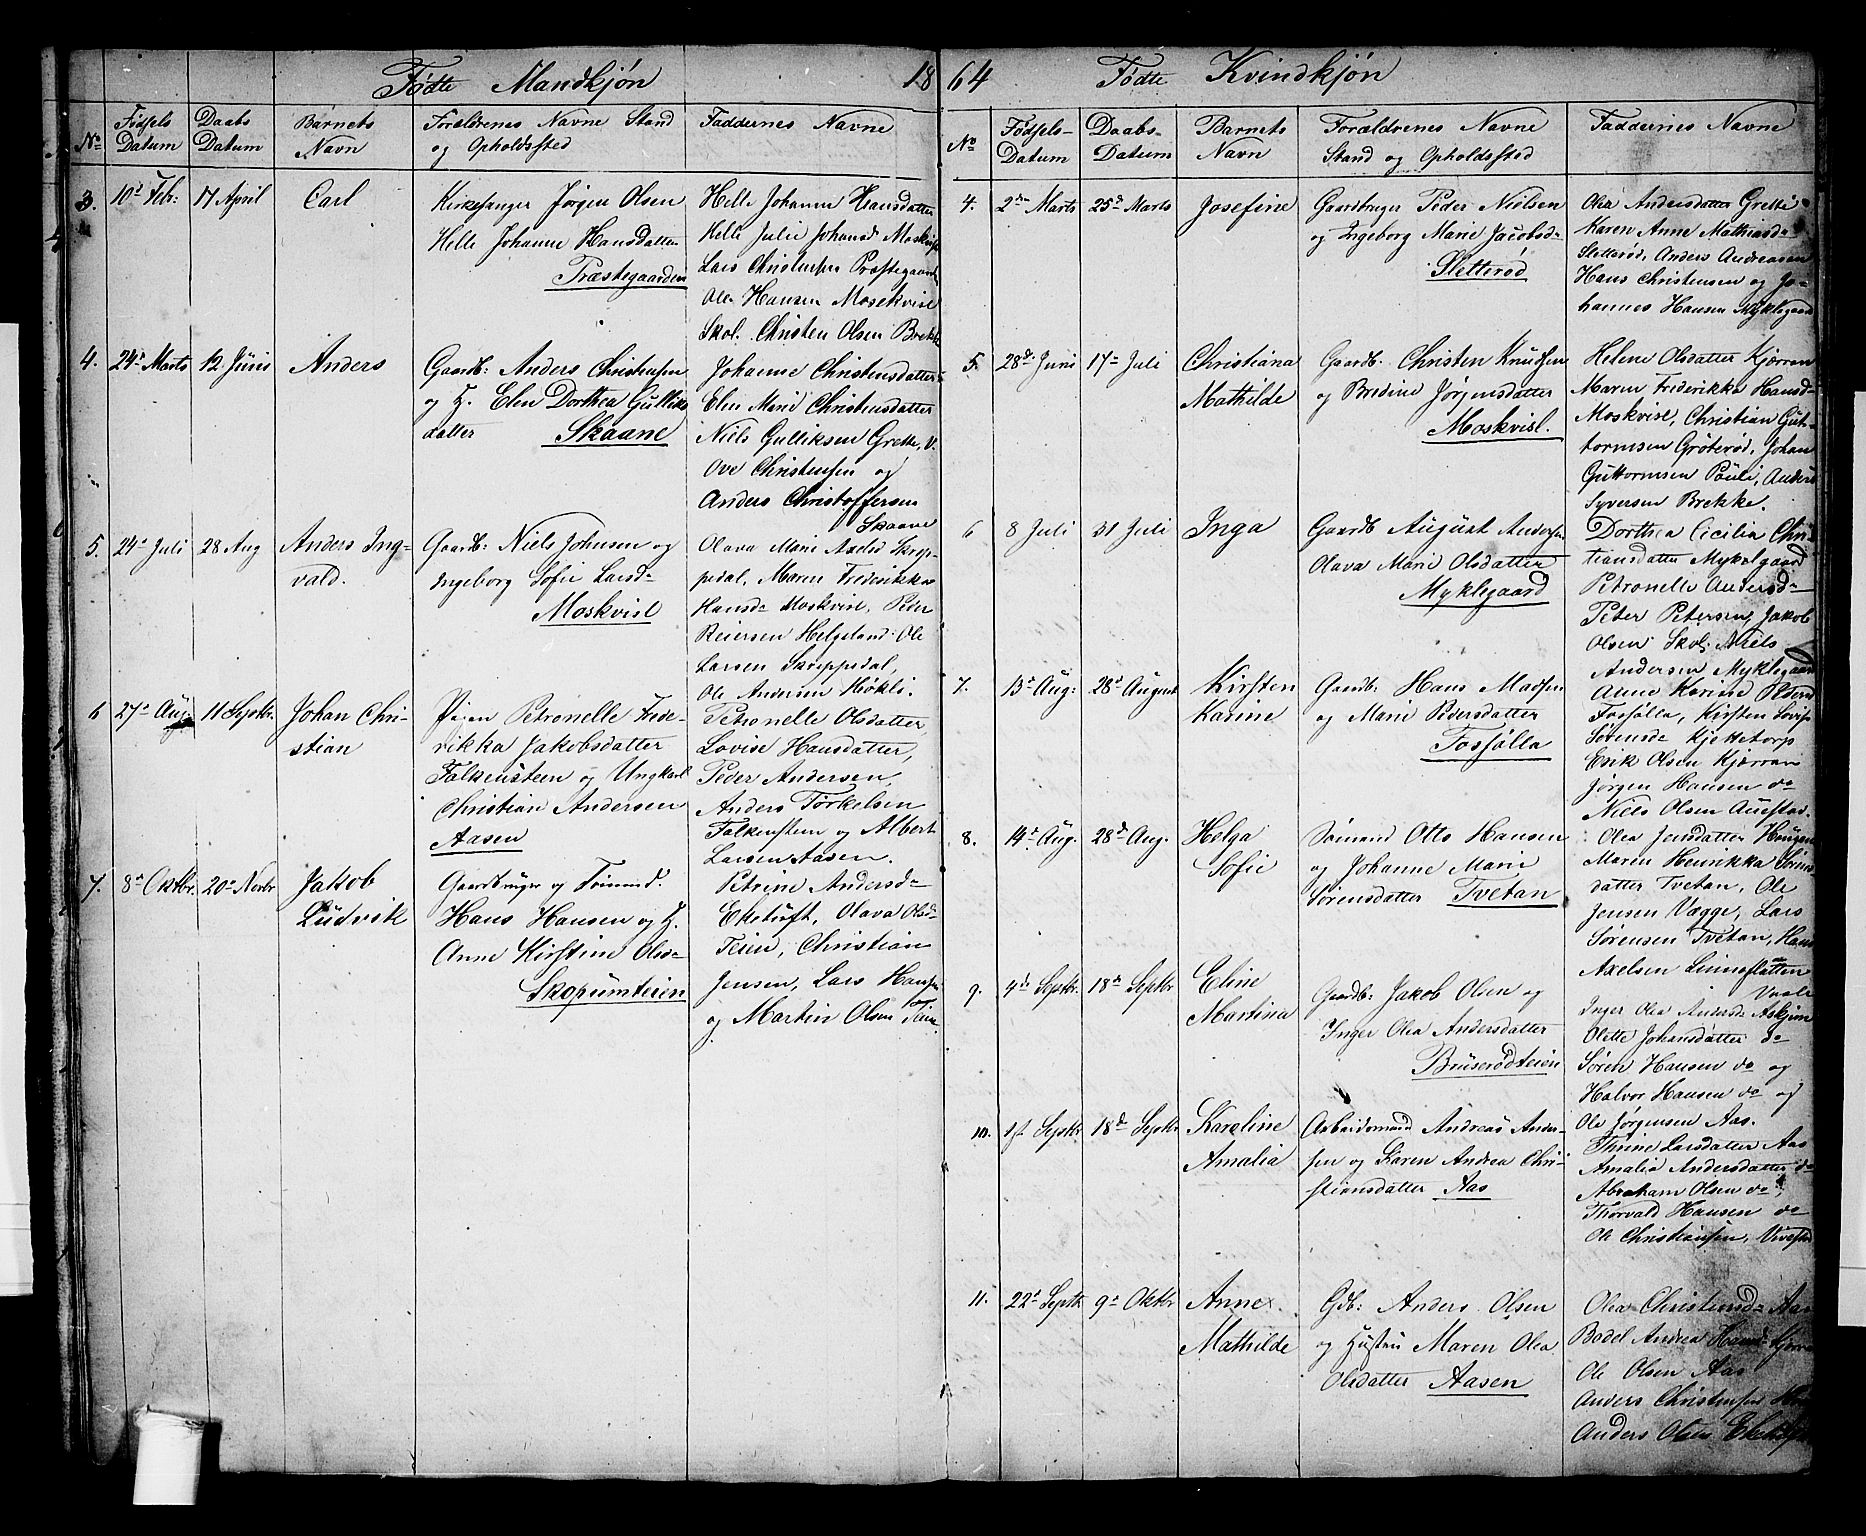 Fødte Mandkjøn 18
No
Fødsels Datum
Daabs Datum
Barnets Navn
Forældrenes Navne Stand og Opholdssted
Faddernes Navne
3. 10d Febr: 17 April Carl
Kirkesanger Jørgen Olsen
Helle Johanne Hansdatter
Præstegaarden
Helle Johanne Hansdatter
Helle Julie Johansd Moskvisl
Lars Christensen Præstegaard
Ole Hansen Mosekvisl
Skol. Christen Olsen Brekke
4. 24d Marts 12 Juni Anders
Gaardb: Anders Christensen
og H. Elen Dorthea Gulliks
datter Skaane
Johanne Christensdatter
Elen Marie Christensdatter
Niels Gulliksen Grette, V.
Ove Christensen og
Anders Christoffersen
Skaane
5. 24d Juli 28 Aug Anders Ing-
vald.
Gaardb: Niels Johnsen og
Ingeborg Sofie Larsd-
Moskvisl
Olava Marie Axelsd Skrep-
pedal, Maren Frederikke
Hansd- Moskvisl, Peder
Reiersen Helgeland. Ole
Larsen Skreppedal,
Ole Andersen Høkli.
6 27d Aug 11 Septbr. Johan Chri-
stian
Pigen Petronelle Frede-
rikka Jakobsdatter
Falkensteen og Ungkarl
Christian Andersen
Aasen
Petronelle Olsdatter
Lovise Hansdatter,
Peder Andersen,
Anders Torkelsen
Falkenstein og Albert
Larsen Aasen.
7. 8d Oktbr. 20d Novbr Jakob
Ludvik
Gaardbruger og Tømmd.
Hans Hansen og H.
Anne Kirstine Olsd-
Skopumteien
Petrine Andersd-
Ekstuft, Olava Olsd-
Teien, Christian
Jensen, Lars Hansen
og Martin Olsen Teien
64 Fødte Kvindkjøn
No
Fødsels-Datum
Daabs-Datum
Barnets Navn
Forældrenes Navne
Stand og Opholdssted
Faddernes Navne
4. 2den Marts 25d Marts Josefine
Gaardbruger Peder Nielsen
og Ingeborg Marie Jacobsd-
Sletterød
Olea Andersdatter Grette
Karen Anne Mathiasd-
Sletterød, Anders Andreasen
Hans Christensen og Jo-
hannes Hansen Myklegaard
5. 28d Juni 17d Juli Christiana
Mathilde
Gaardb. Christen Knudsen
og Bredine Jørgensdatter
Moskvisl.
Helene Olsdatter Kjærran
Maren Frederikka Hansd-
Moskvisl, Christian Gut-
tormsen Grøterød, Johan
Guttormsen Pauli, Anders
Syversen Brekke.
6 8 Juli 31 Juli Inga
Gaardb August Andersen
Olava Marie Olsdatter
Myklegaard
Dorthea Cicilia Chri-
stiansdatter Myklegaard
Petronelle Andersd-
Peter Petersen, Jakob
Olsen Skol: Niels
Andersen Myklegaard
7. 13d Aug: 28d August Kirsten
Karine
Gaardb: Hans Madsen
og Marie Pedersdatter
Fossølla
Anne Karine Pedersd
Fossølla, Kirsten Lovise
Sørensd- Kjettorp
Erik Olsen Kjærran
Jørgen Hansen do
Niels Olsen Augestad.
8. 14d Aug. 28d Aug. Helga
Sofie
Sømand Otto Hansen
og Johanne Marie
Sørensdatter Tvetan
Olea Jensdatter Haugen
Maren Henrikka Sørens-
datter Tvetan, Ole
Jensen Vegge, Lars
Sørensen Tvetan, Hans
Axelsen Linneslatten
9. 4d Septbr. 18d Septbr Eline
Martina
Gaardb: Jakob Olsen og
Inger Olea Andersdatter
Bruserødteien
Vaale
Inger Olea Andersd- Askjem
Olette Johansdatter do
Søren Hansen do og
Halvor Hansen do og
Ole Jørgensen Aas.
10. Septbr 18d Septbr Karoline
Amalia
Arbeidsmand Andreas Ander-
sen og Karen Andrea Chri-
stiansdatter Aas
Thrine Larsdatter Aas
Amalia Andersdatter do
Abraham Olsen do
Thorvald Hansen do
Ole Christiansen, Vivestad
11. 22d Septbr 9d Oktbr Anne
Mathilde
Gdb: Anders Olsen
og Hustru Maren Olea
Olsdatter Aasen
Olea Christensd- Aas
Bodel Andrea Hansd- Kjærran
Ole Olsen Aas
Anders Christensen
Anders Olsen